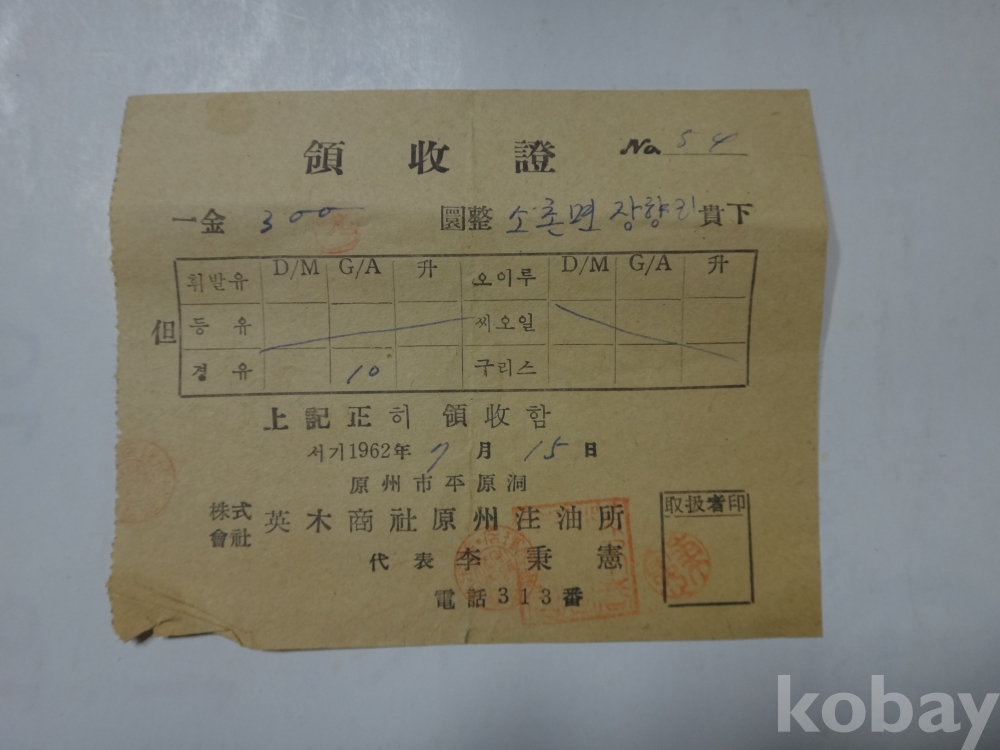 領收證 No. 54
一金 300 圜整 소촌면 장향리 貴下
但
휘발유 D/M G/A 升 오이루 D/M G/A 升
등유 씨오일
경유 10 구리스
上記正히 領收함
서기1962年 7月 15日
原州市平原洞
株式會社 英木商社原州注油所
取扱者印
代表 李秉憲
電話 313番
kobay